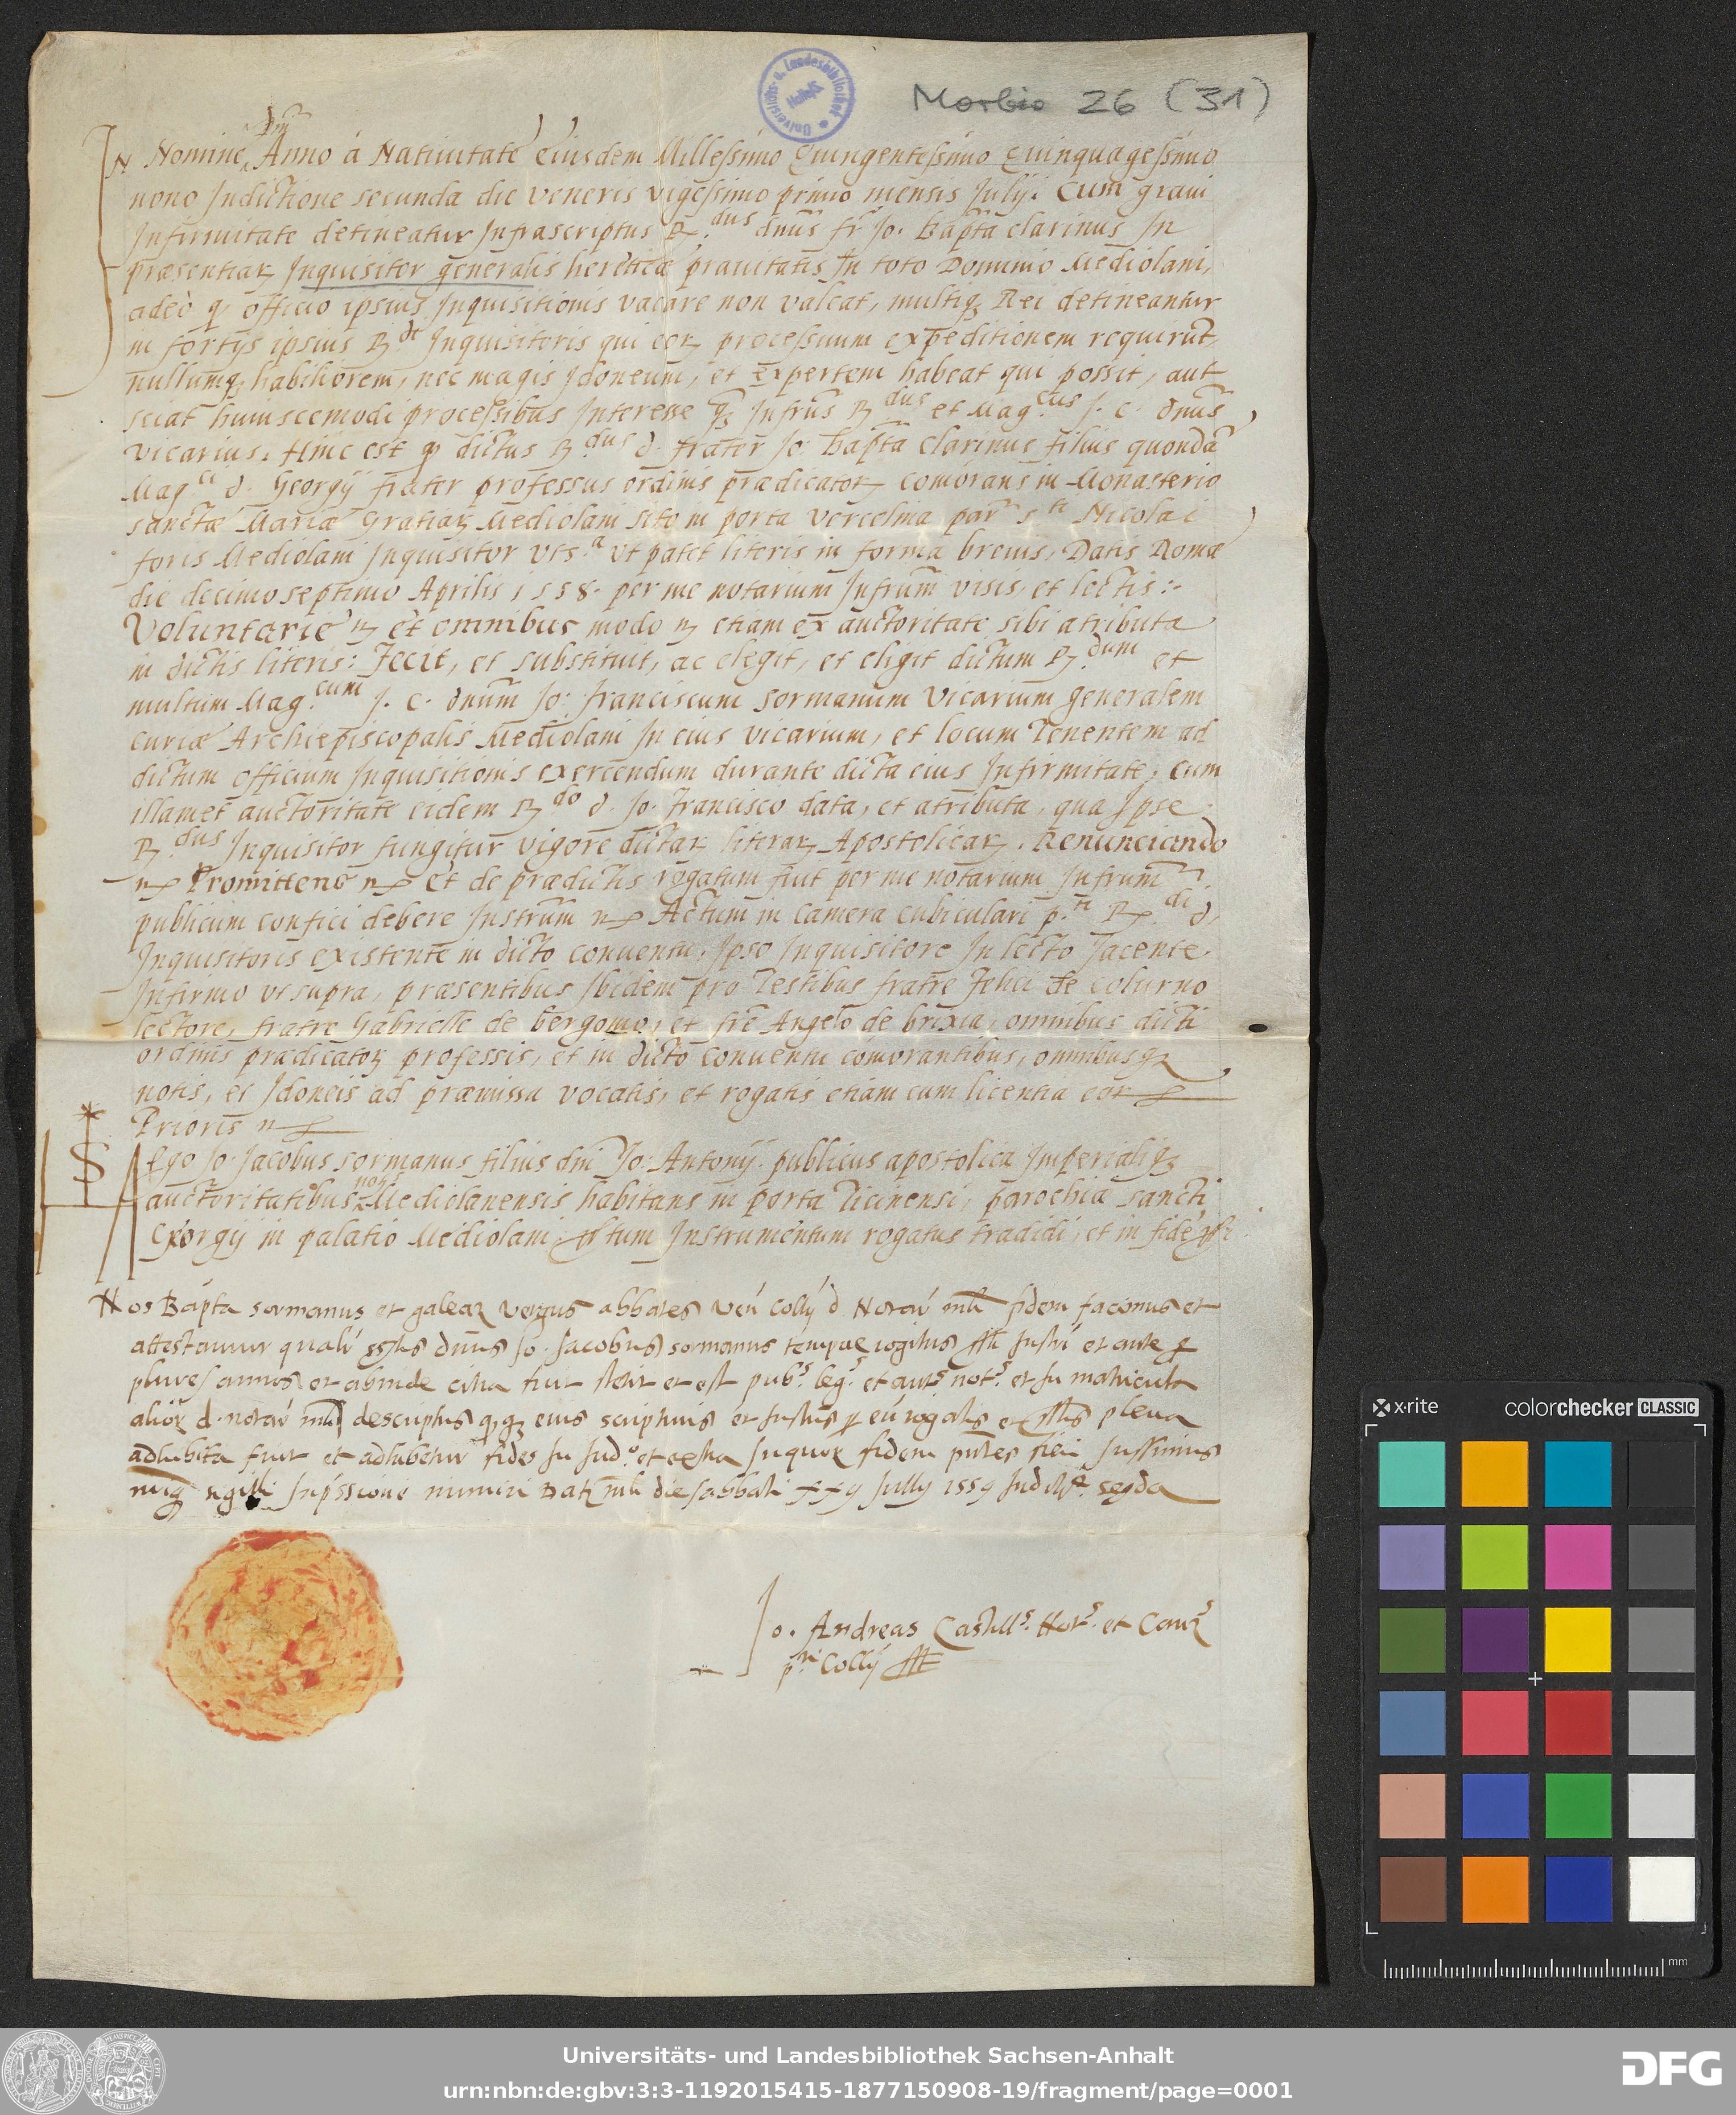 Universitäts- u. Landesbibliothek Halle
Morbio 26 (31)
Dñi
IN Nomine Anno à Natiuitate eiusdem Millessimo Quingentessimo Quinquagessimo
nono Indictione secunda die veneris vigessimo primo mensis Julij. Cum graui
Infirmitate detineatur Infrascriptus R.dus dnus fr Jo. Bapta clarinus In
præsentiarum Inquisitor generalis hereticæ prauitatis In toto Dominio Mediolani,
adeò q officio ipsius Inquisitionis vacare non valeat, multiq; Rei detineantur
in fortijs ipsius R.di Inquisitoris qui eorum processuum expeditionem requirũt,
nullumq; habiliorem, nec magis Idoneum, et expertem habeat qui possit, aut
sciat huiuscemodi processibus Interesse q; Infrus R.dus et Mag.cus J. C. dnus
vicarius. Hinc est q dictus R.dus d. frater Jo. bapta Clarinus filius quondã
Mag.ci d. Georgij frater professus ordinis prædicatorum comorans in Monasterio
sanctæ Mariæ Gratiarum Mediolani sito in porta vercelina par. s.ti Nicolai
foris Mediolani Inquisitor vts.a vt patet literis in forma breuis, Datis Romæ
die decimoseptimo Aprilis 1558. per me notarium Infrum visis, et lectis:-
Voluntarie et omnibus modo etiam ex auctoritate sibi atributa
in dictis literis: Fecit, et substituit, ac elegit, et eligit dictum R.dum et
multum Mag.cum J. C. dnum Jo: franciscum sormanum Vicarium generalem
curiæ Archiepiscopalis Mediolani In eius vicarium, et locum Tenentem ad
dictum officium Inquisitionis exercendum durante dicta eius Infirmitate, cum
illamet auctoritate eidem R.do d. Jo. francisco data, et atributa, qua Ipse
R.dus Inquisitor fungitur vigore dictarum literarum Apostolicarum. Renunciando
Promittens et de prædictis rogatum fuit per me notarium Infrum
publicum confici debere Instrum Actum in Camera cubiculari p.ti R.di d.
Inquisitoris existente in dicto conuentu, Ipso Inquisitore In lecto Jacente
Infirmo vt supra, præsentibus Ibidem pro Testibus fratre Felici de Colurno
lectore, fratre Gabrielle de bergomo, et fre Angelo de brixia, omnibus dicti
ordinis prædicatorum professis, et in dicto conuentu comorantibus, omnibusq;
notis, et Idoneis ad præmissa vocatis, et rogatis etiam cum licentia eor
Prioris
Ego Jo. Jacobus sormanus filius dni Jo: Antonij publicus apostolica Imperialiq;
auctoritatibus not Mediolanensis habitans in porta Ticinensi, parochia sancti
Georgij in palatio Mediolani Instrumentum rogatus tradidi, et in fidẽ
Nos Bapta sormanus et galeaz abbates Ven Collij d Notar mli fidem facimus et
attestamur dnus Jo. Jacobus sormanus tempore rogitus et ante
plures annos et abinde citra fuit stetit et est pub.s leg.s et aut. not.s et In matricula
d. notar mli descriptus eius scripturis et plena
adhibita fuit et adhibetur fides In Jud.o et extra In quorum fidem fieri Jussimus
sigilli Impressione muniri Dat mli die sabbati Julij 1559 Indict.
Jo. Andreas Castill.s Not.s et Canz
p.ti Collij
x·rite colorchecker CLASSIC
mm
Universitäts- und Landesbibliothek Sachsen-Anhalt
urn:nbn:de:gbv:3:3-1192015415-1877150908-19/fragment/page=0001
DFG